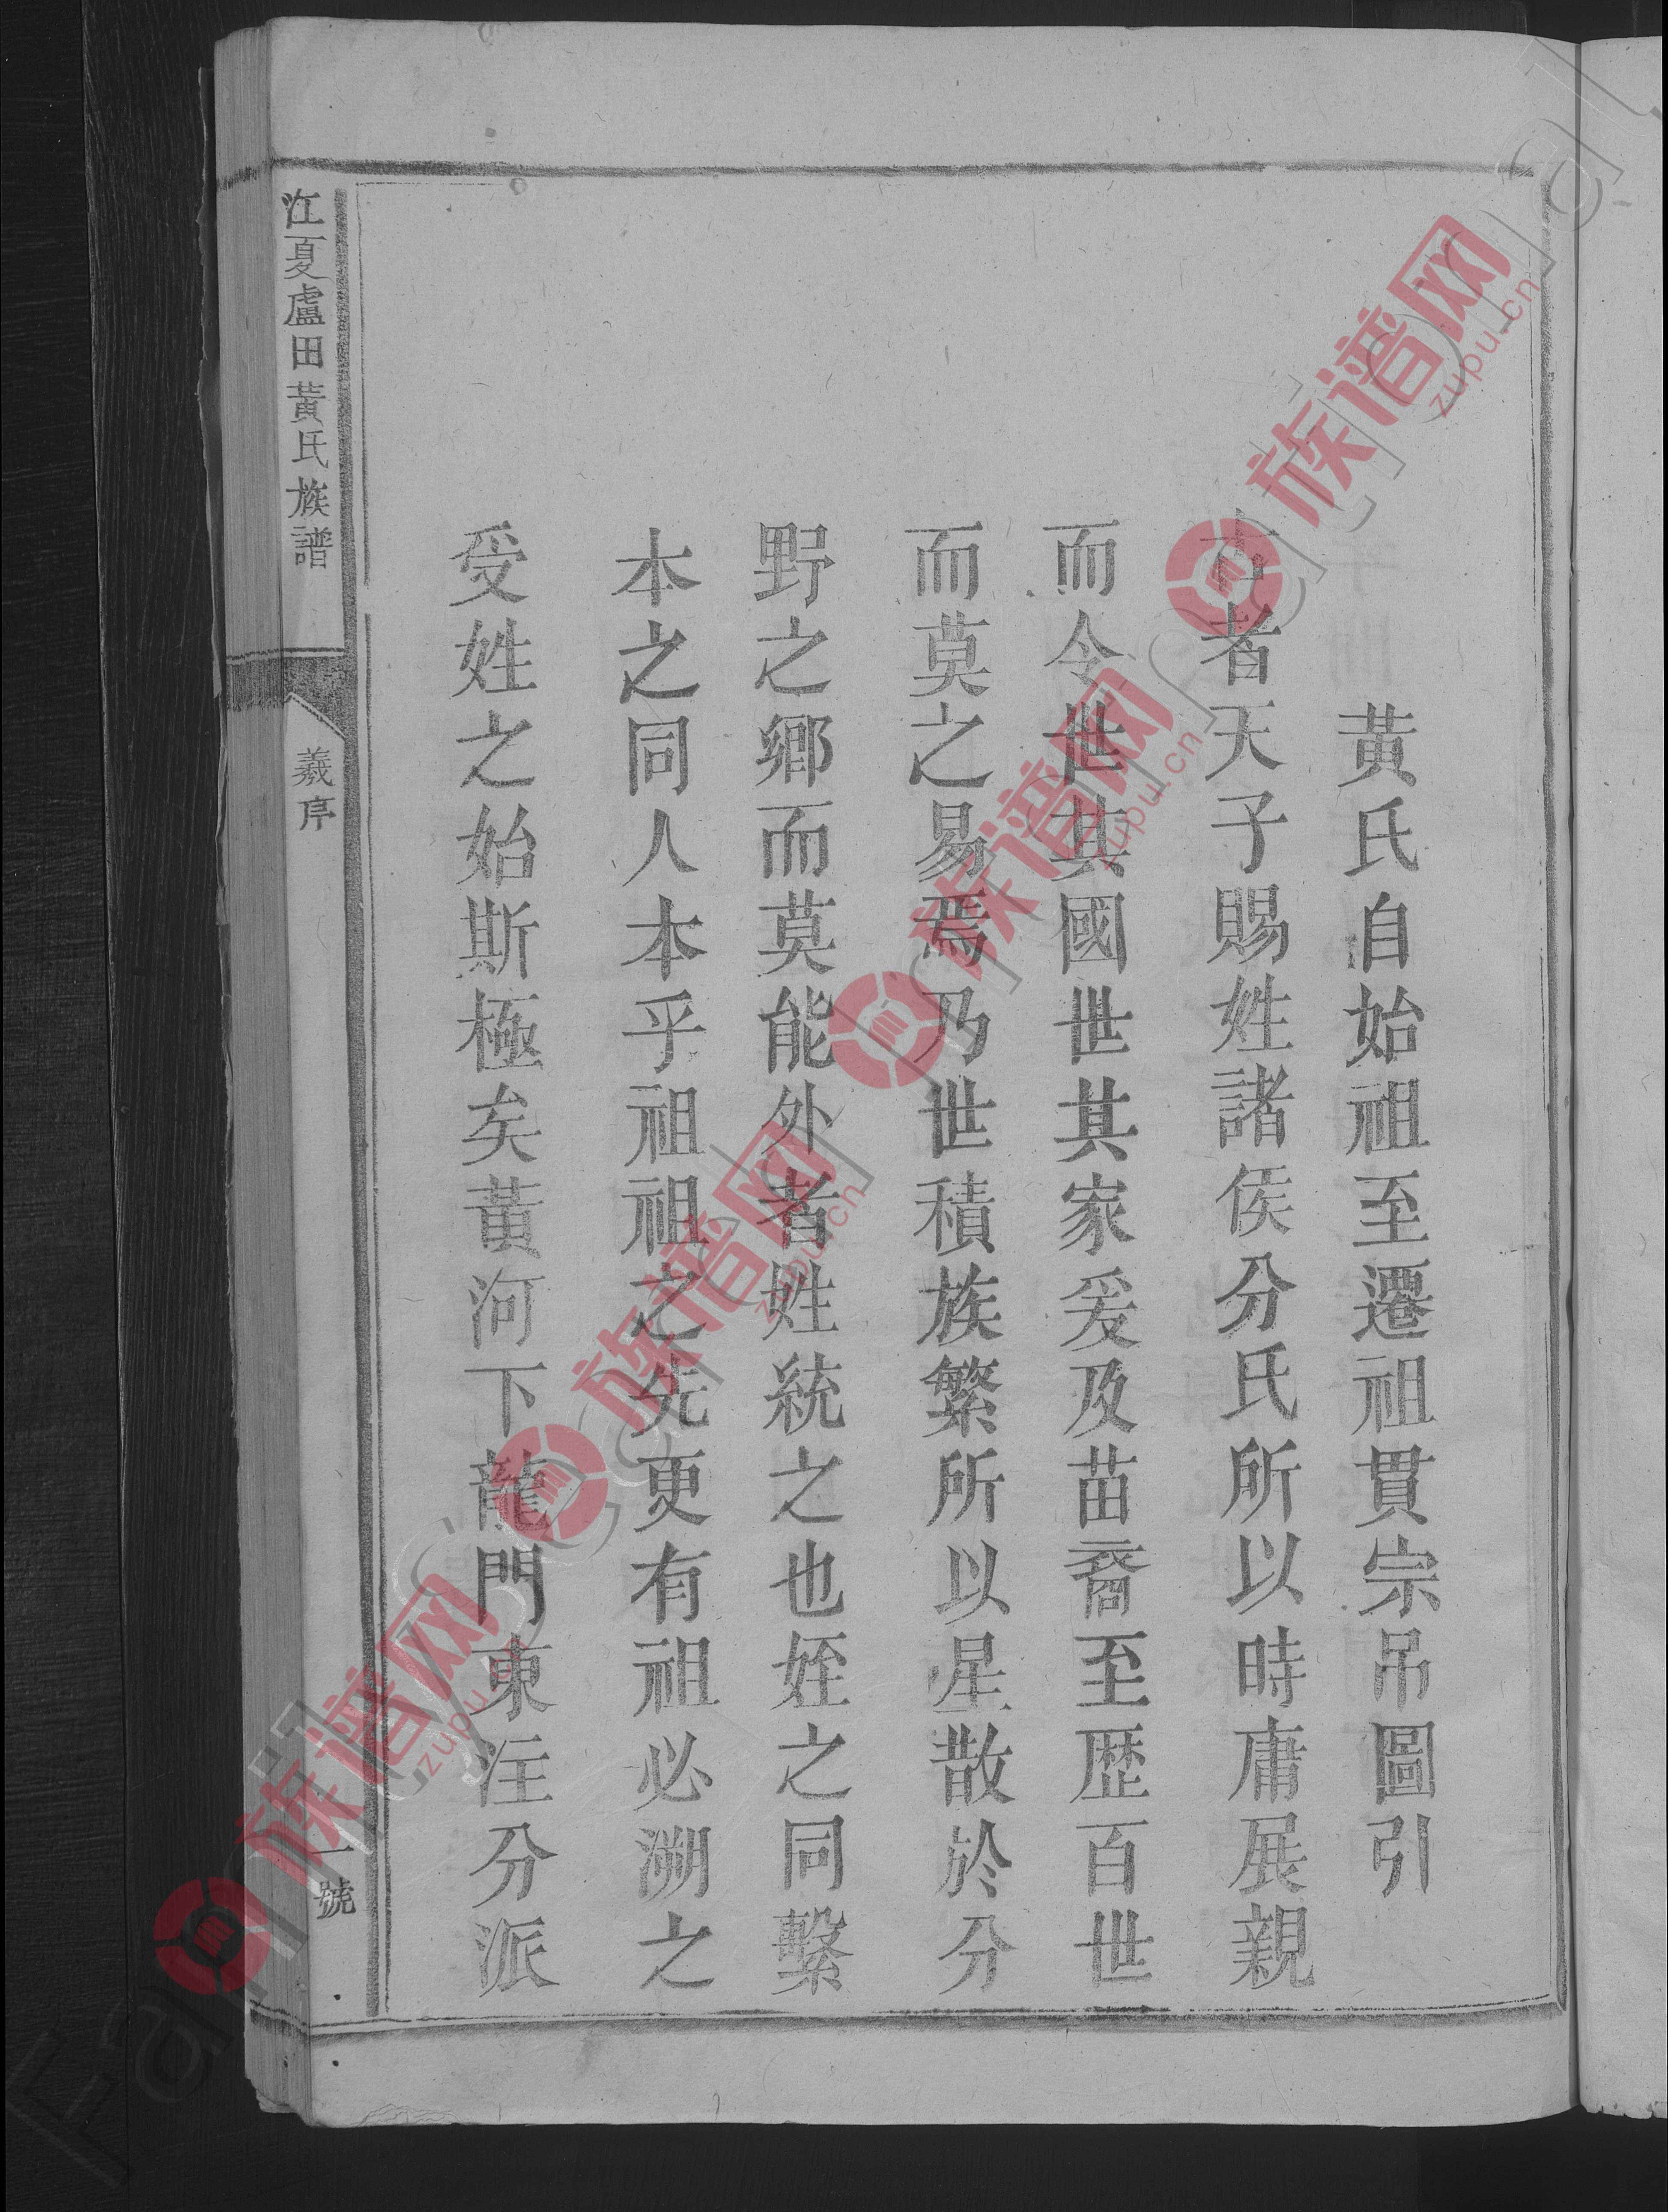 黃氏自始祖至遷祖貫宗吊圖引
古者天子賜姓諸侯分氏所以時庸展親
而令世其國世其家爰及苗裔至歴百世
而莫之易焉乃世積族繁所以星散於分
野之鄉而莫能外者姓統之也姪之同繫
本之同人本乎祖祖之先更有祖必溯之
受姓之始斯極矣黃河下龍門東注分派
江夏盧田黃氏族譜
義序
一號
族谱网
zupu.cn
族谱网
zupu.cn
族谱网
zupu.cn
族谱网
zupu.cn